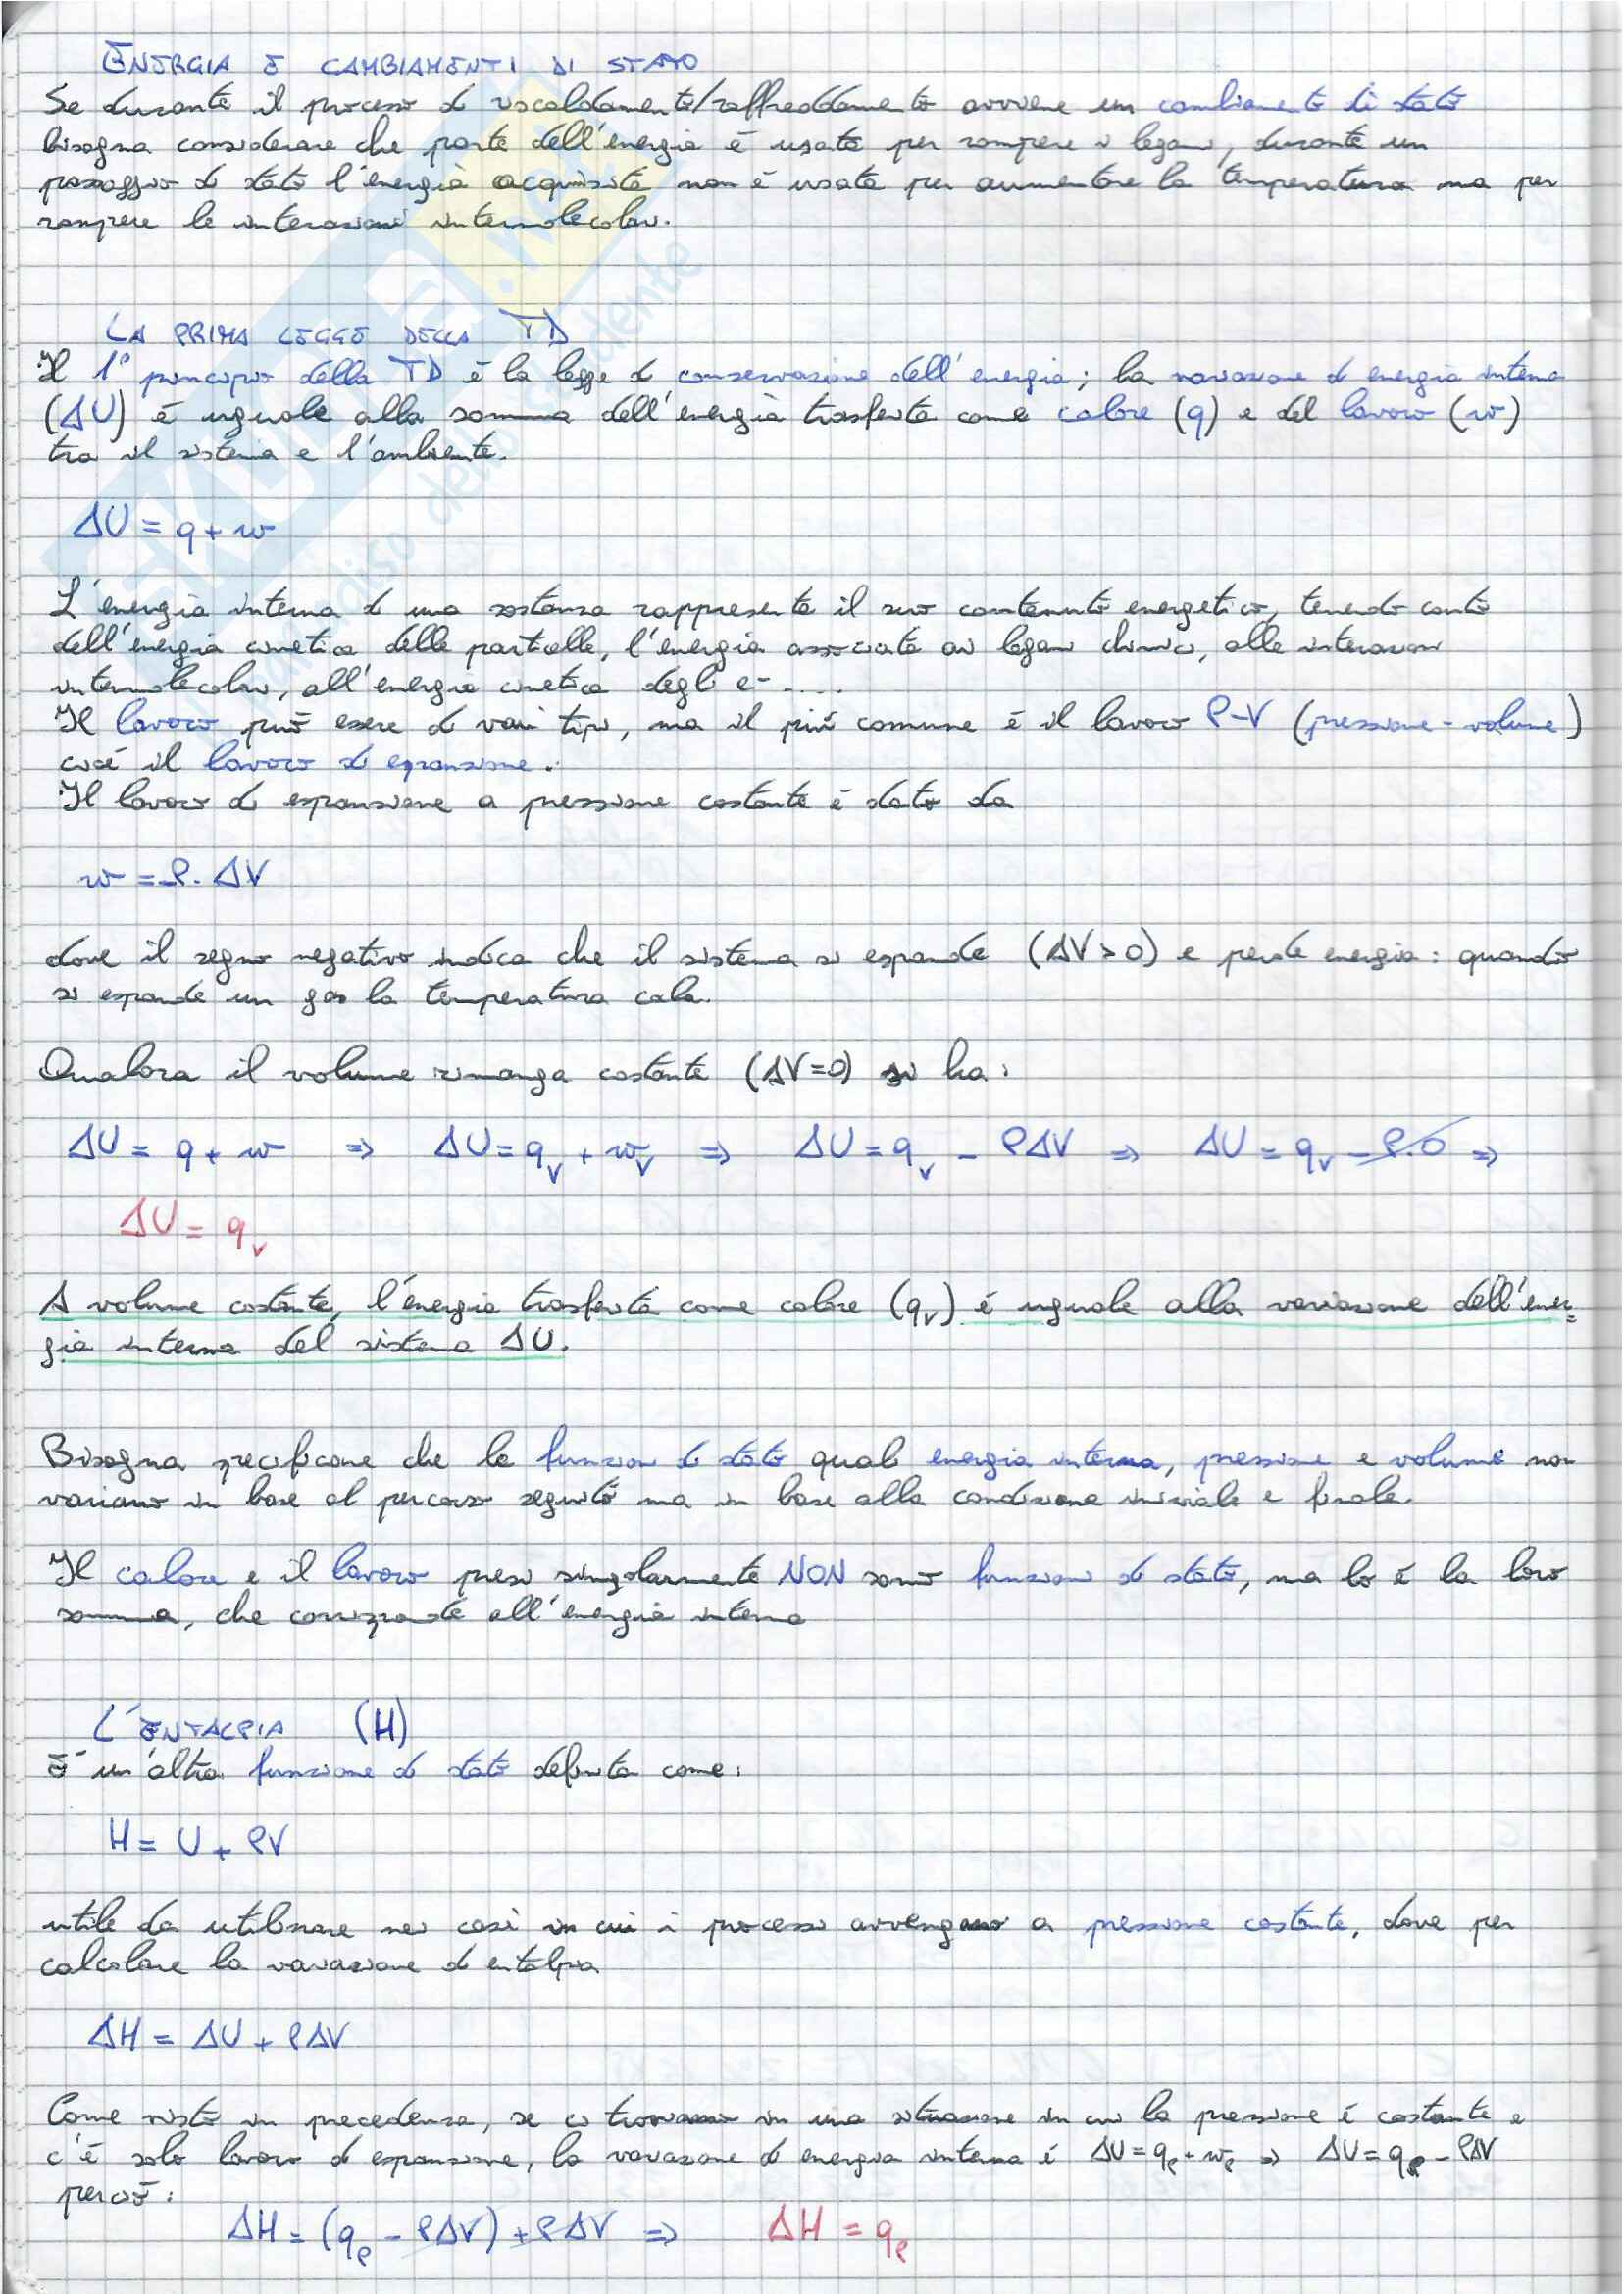 ENERGIA E CAMBIAMENTI DI STATO
Se durante il processo di riscaldamento/raffreddamento avviene un cambiamento di stato
bisogna considerare che parte dell'energia è usata per rompere i legami, durante un
passaggio di stato l'energia acquisita non è usata per aumentare la temperatura ma per
rompere le interazioni intermolecolari.
LA PRIMA LEGGE DELLA TD
Il 1° principio della TD è la legge di conservazione dell'energia; la variazione di energia interna
(ΔU) è uguale alla somma dell'energia trasferita come calore (q) e del lavoro (w)
tra il sistema e l'ambiente.
ΔU = q + w
L'energia interna di una sostanza rappresenta il suo contenuto energetico, tenendo conto
dell'energia cinetica delle particelle, l'energia associata ai legami chimici, alle interazioni
intermolecolari, all'energia cinetica degli e- ....
Il lavoro può essere di vari tipi, ma il più comune è il lavoro P-V (pressione-volume)
cioè il lavoro di espansione.
Il lavoro di espansione a pressione costante è dato da
w = -P · ΔV
dove il segno negativo indica che il sistema si espande (ΔV > 0) e perde energia: quando
si espande un gas la temperatura cala.
Qualora il volume rimanga costante (ΔV=0) si ha:
ΔU = q + w ⇒ ΔU = qv + wv ⇒ ΔU = qv - PΔV ⇒ ΔU = qv - P·0 ⇒
ΔU = qv
A volume costante, l'energia trasferita come calore (qv) è uguale alla variazione dell'ener=
gia interna del sistema ΔU.
Bisogna specificare che le funzioni di stato quali energia interna, pressione e volume non
variano in base al percorso seguito ma in base alla condizione iniziale e finale.
Il calore e il lavoro presi singolarmente NON sono funzioni di stato, ma lo è la loro
somma, che corrisponde all'energia interna
L'ENTALPIA (H)
È un'altra funzione di stato definita come:
H = U + PV
utile da utilizzare nei casi in cui i processi avvengano a pressione costante, dove per
calcolare la variazione di entalpia
ΔH = ΔU + PΔV
Come visto in precedenza, se ci troviamo in una situazione in cui la pressione è costante e
c'è solo lavoro di espansione, la variazione di energia interna è ΔU = qp + wp ⇒ ΔU = qp - PΔV
perciò:
ΔH = (qp - PΔV) + PΔV ⇒ ΔH = qp